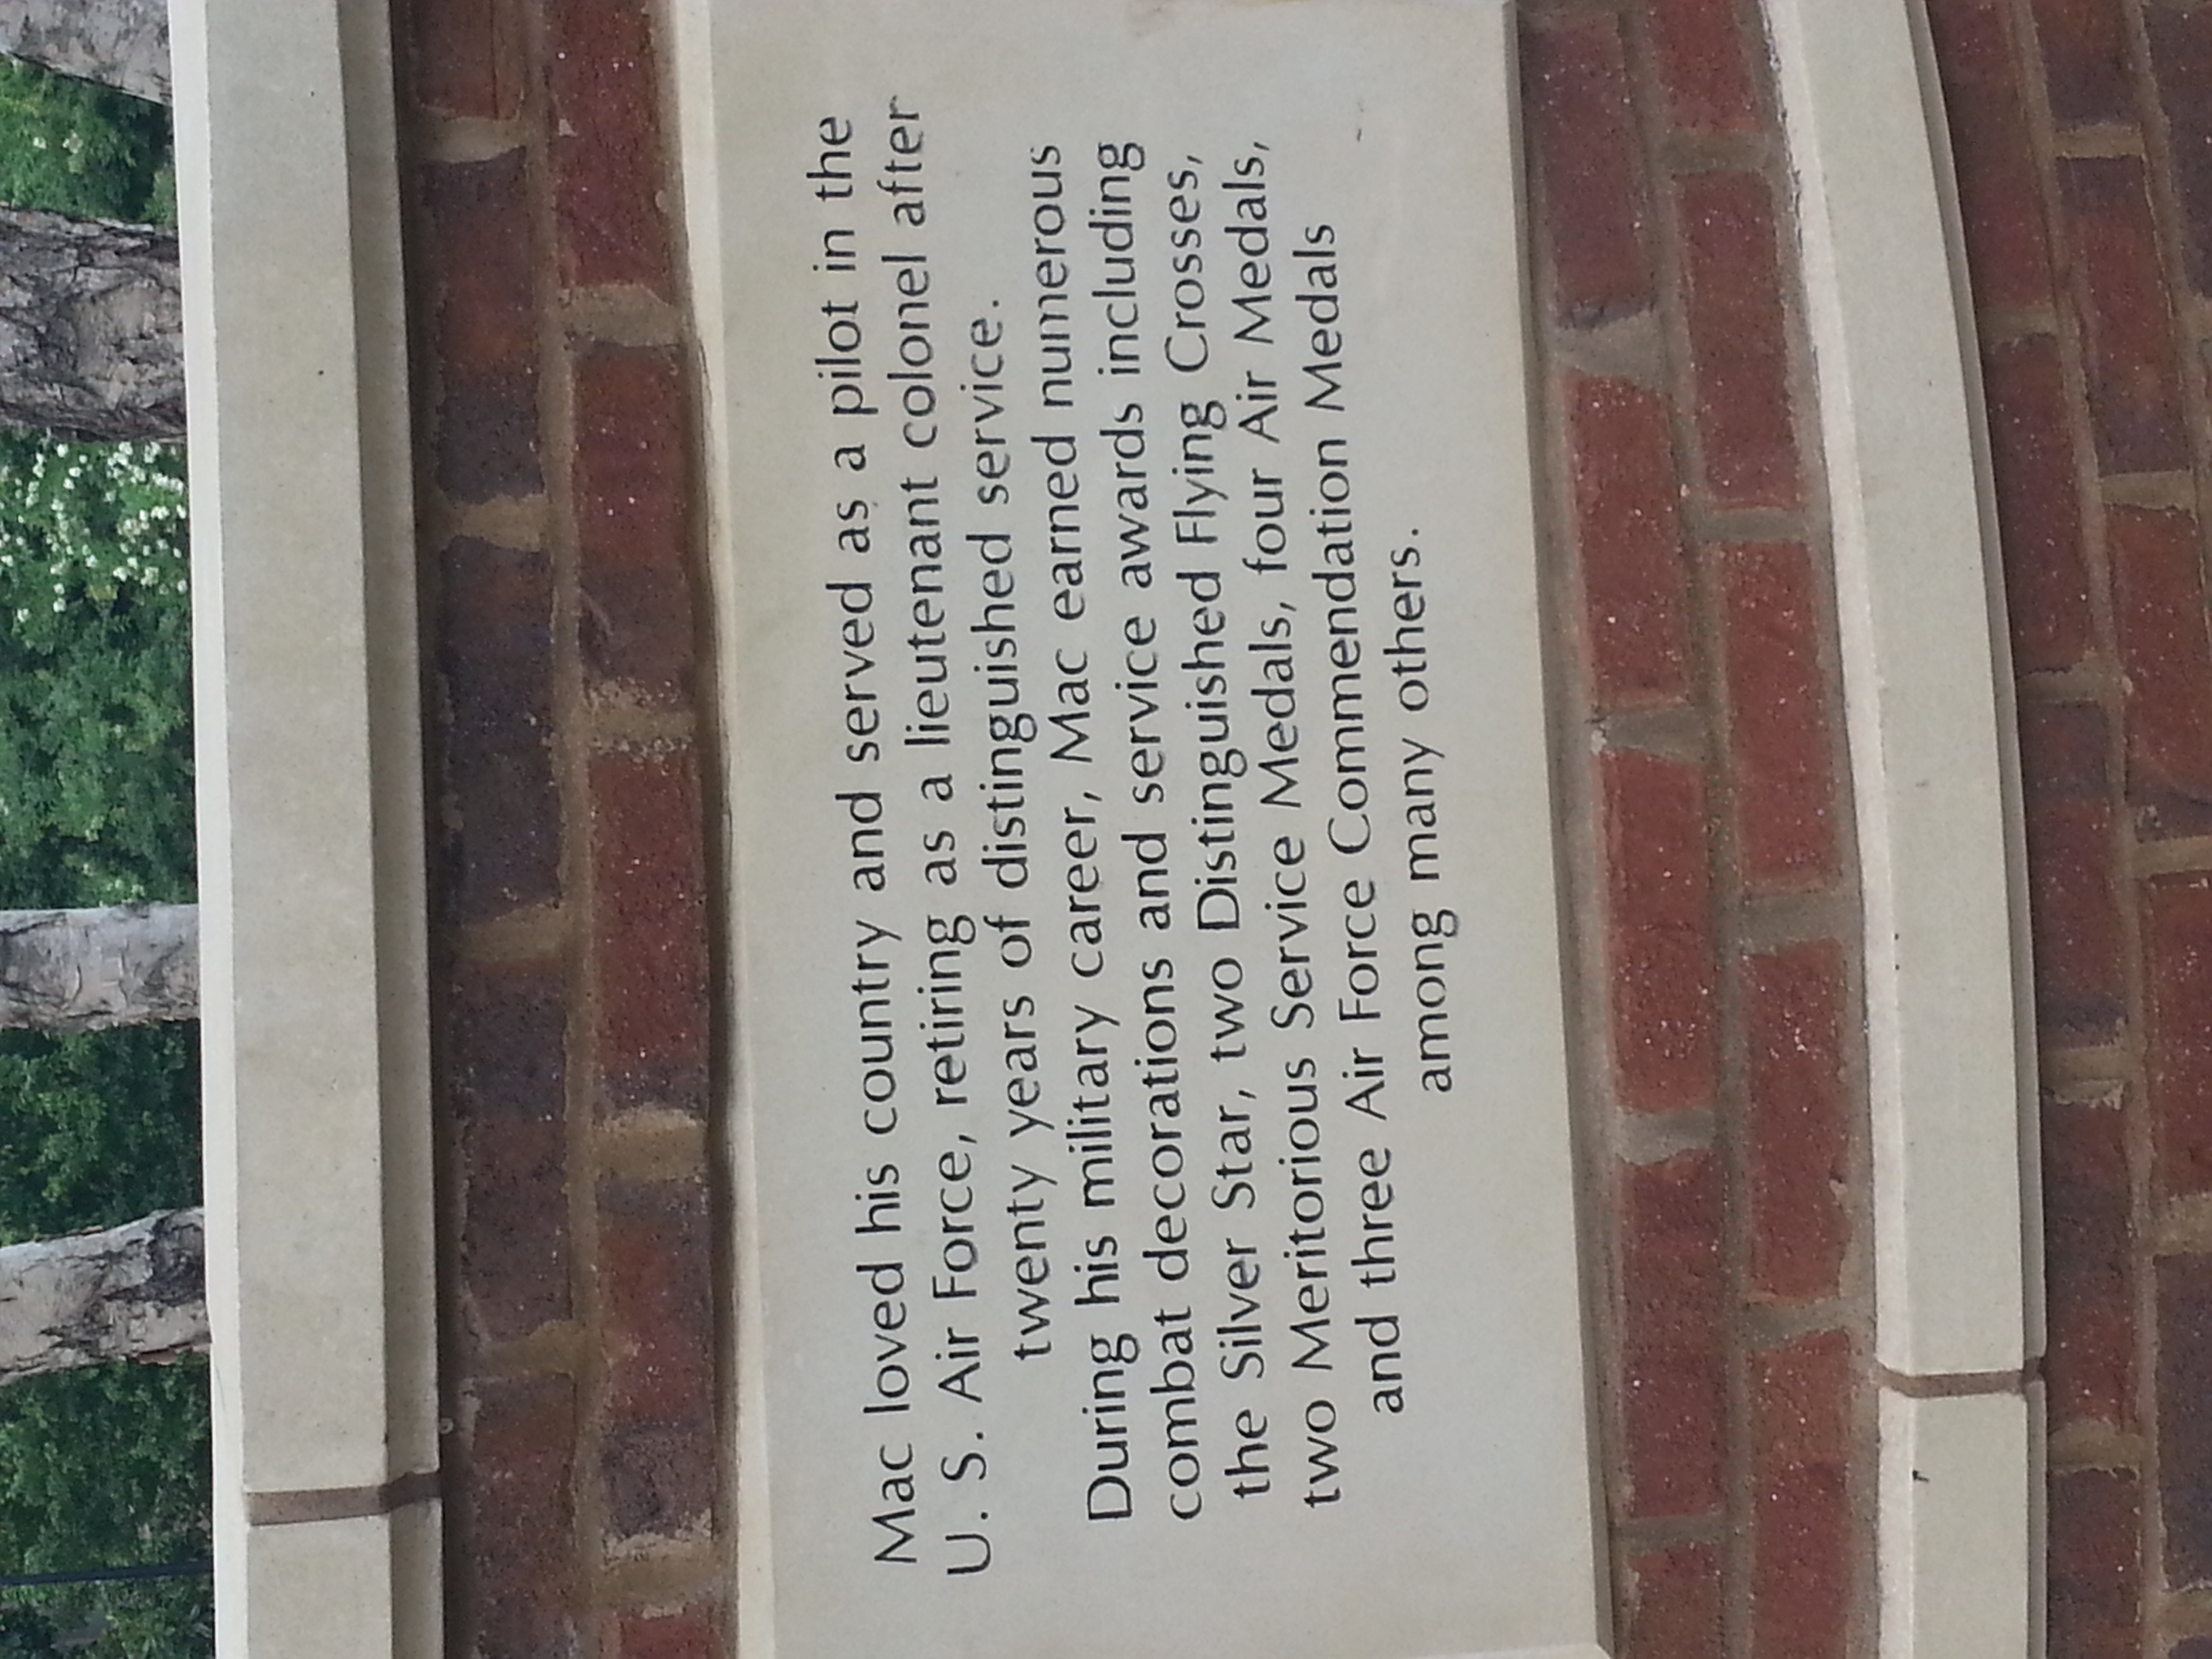 Mac loved his country and served as a pilot in the
U. S. Air Force, retiring as a lieutenant colonel after
twenty years of distinguished service.
During his military career, Mac earned numerous
combat decorations and service awards including
the Silver Star, two Distinguished Flying Crosses,
two Meritorious Service Medals, four Air Medals,
and three Air Force Commendation Medals
among many others.